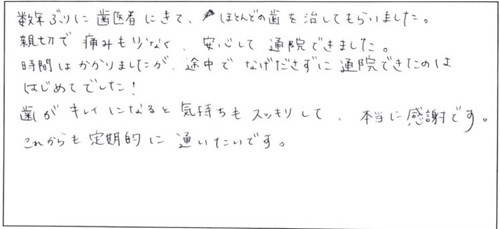 数年ぶりに歯医者にきて、ほとんどの歯を治してもらいました。
親切で痛みも少なく、安心して通院できました。
時間はかかりましたが、途中でなげださずに通院できたのは
はじめてでした!
歯がキレイになると気持ちもスッキリして、本当に感謝です。
これからも定期的に通いたいです。